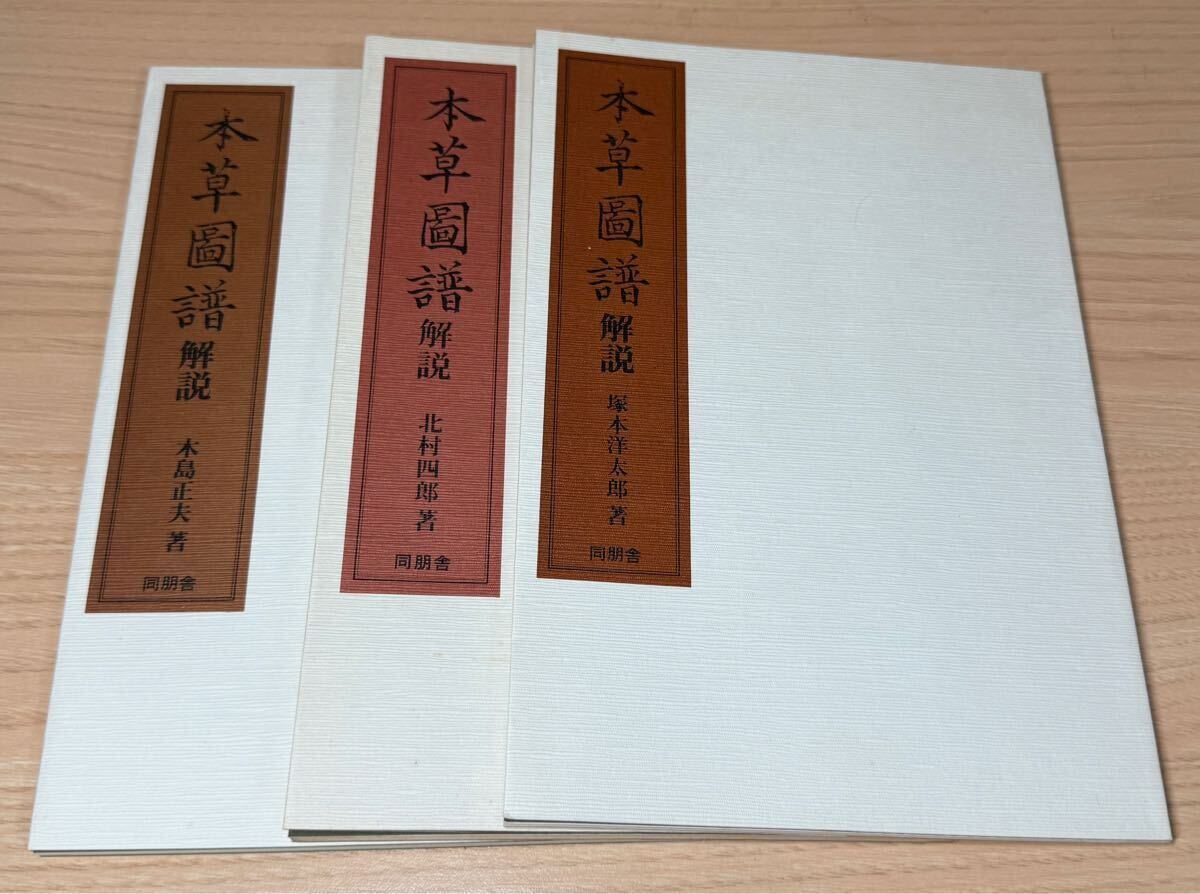 本草圖譜 解説 木島正夫 著
同朋舎
本草圖譜 解説 北村四郎 著
同朋舎
本草圖譜 解説 塚本洋太郎 著
同朋舎